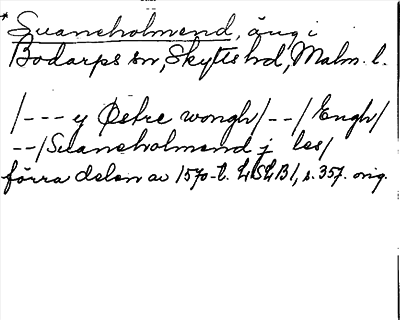 * Suaneholmend, äng i
Bodarps sn, Skytts hd, Malm. l.
/--- y Östre wongh/--/Engh/
--/Suaneholmend j les/
förra delen av 1570-t. LSLB1, s. 357. orig.